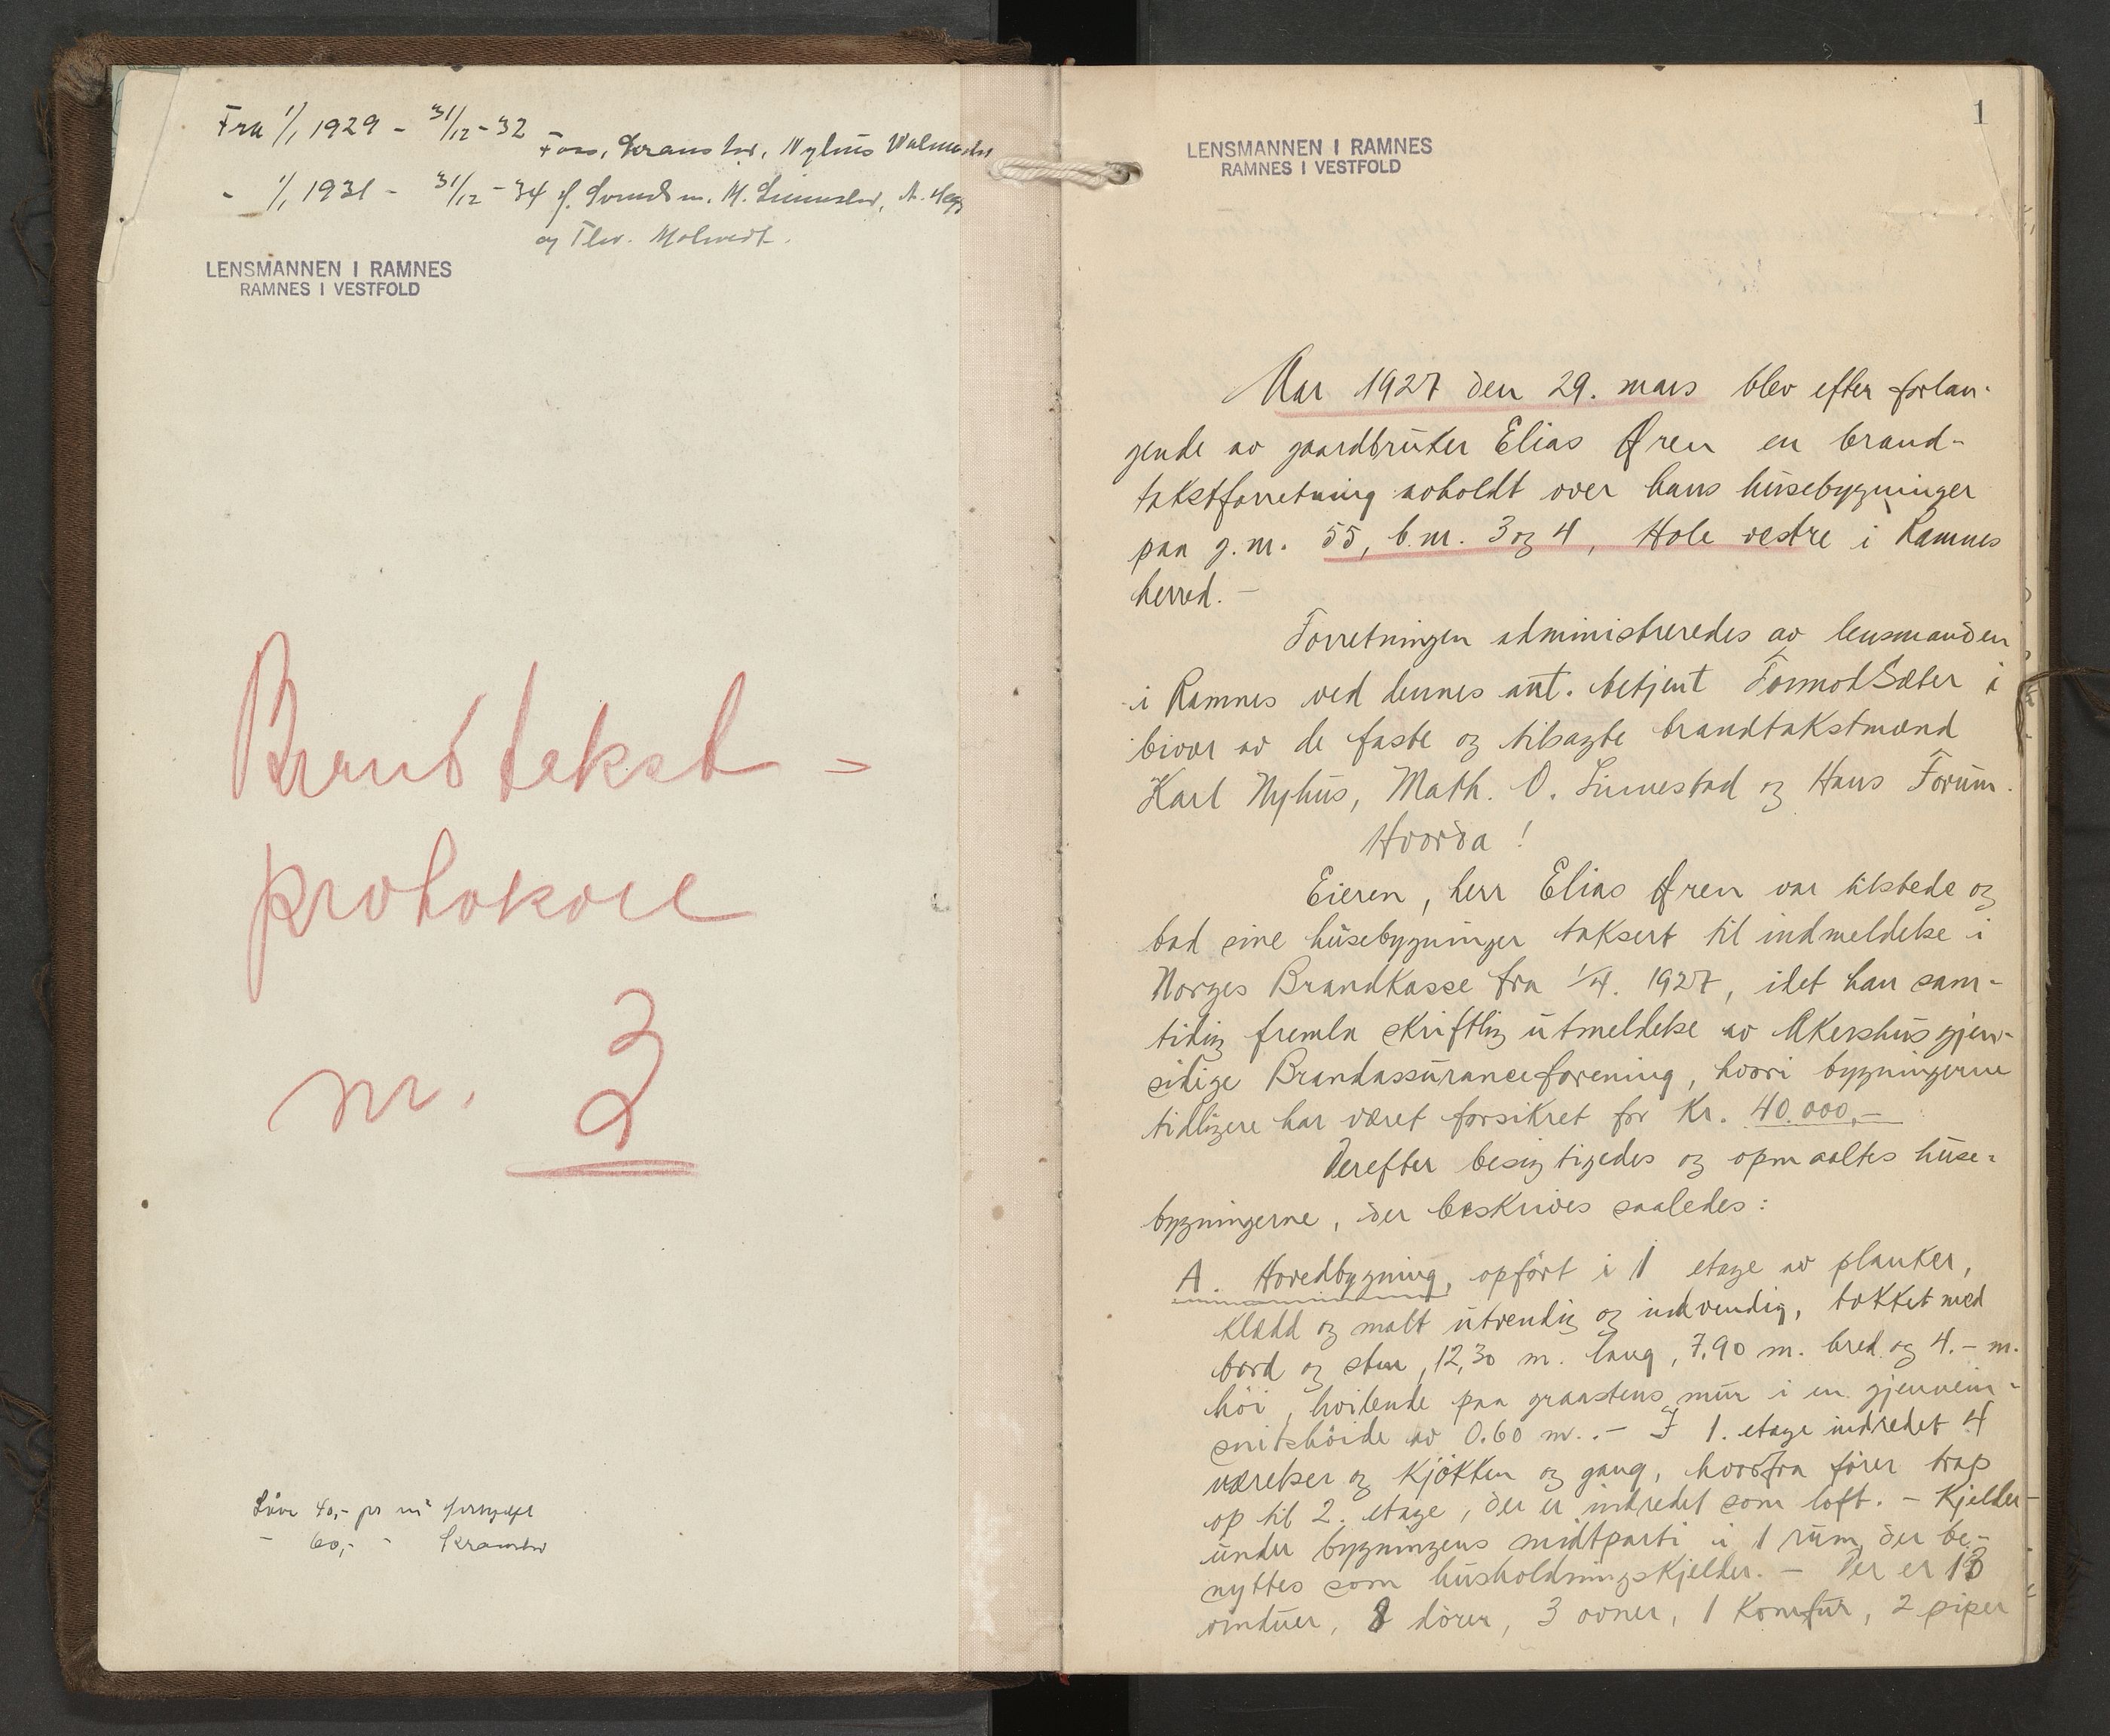 Fra 1/1 1929 - 31/12 - 32 Foss, Nyhus
- 1/1 1931 - 31/12 - 34
og Thv.
LENSMANNEN I RAMNES
RAMNES I VESTFOLD
Brandtakst-
protokoll
nr. 3
40,- pr
- 60,- -
1
LENSMANNEN I RAMNES
RAMNES I VESTFOLD
Aar 1927 den 29. mars blev efter forlan-
gende av gaardbruker Elias Øren en brand-
takstforretning avholdt over hans husebygninger
paa g.nr. 55, b.nr. 3 og 4, Hole vestre i Ramnes
herred. -
Forretningen administreredes av lensmanden
i Ramnes ved dennes aut. betjent Tormod Sæter i
bivær av de faste og tilsagte brandtakstmænd
Karl Nyhus, Math. O. Linnestad og Hans Forum.
Hvorda!
Eieren, herr Elias Øren var tilstede og
bad sine husebygninger taksert til indmeldelse i
Norges Brandkasse fra 1/4. 1927, idet han sam-
tidig fremla skriftlig utmeldelse av Akershus gjen-
sidige Brandassuranceforening, hvori bygningerne
tidligere har været forsikret for Kr. 40.000,-
Derefter besigtigedes og opmaaltes huse-
bygningerne, der beskrives saaledes:
A. Hovedbygning, opført i 1 etage av planker,
klædd og malt utvendig og indvendig, tækket med
bord og sten, 12,30 m. lang, 7,90 m. bred og 4.- m.
høi, hvilende paa graastens mur i en gjennem-
snitshøide av 0.60 m. - I 1. etage indredet 4
værelser og kjøkken og gang, hvorfra fører trap
op til 2. etage, der er indredet som loft. - Kjelder
under bygningens midtparti i 1 rum, der be-
nyttes som husholdningskjelder. - Der er 13
vinduer, 8 dører, 3 ovner, 1 Komfur, 2 piper